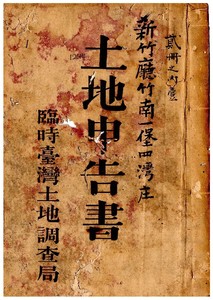 貳冊之內壹
新竹廳竹南一堡四灣庄
土地申告書
臨時臺灣土地調查局